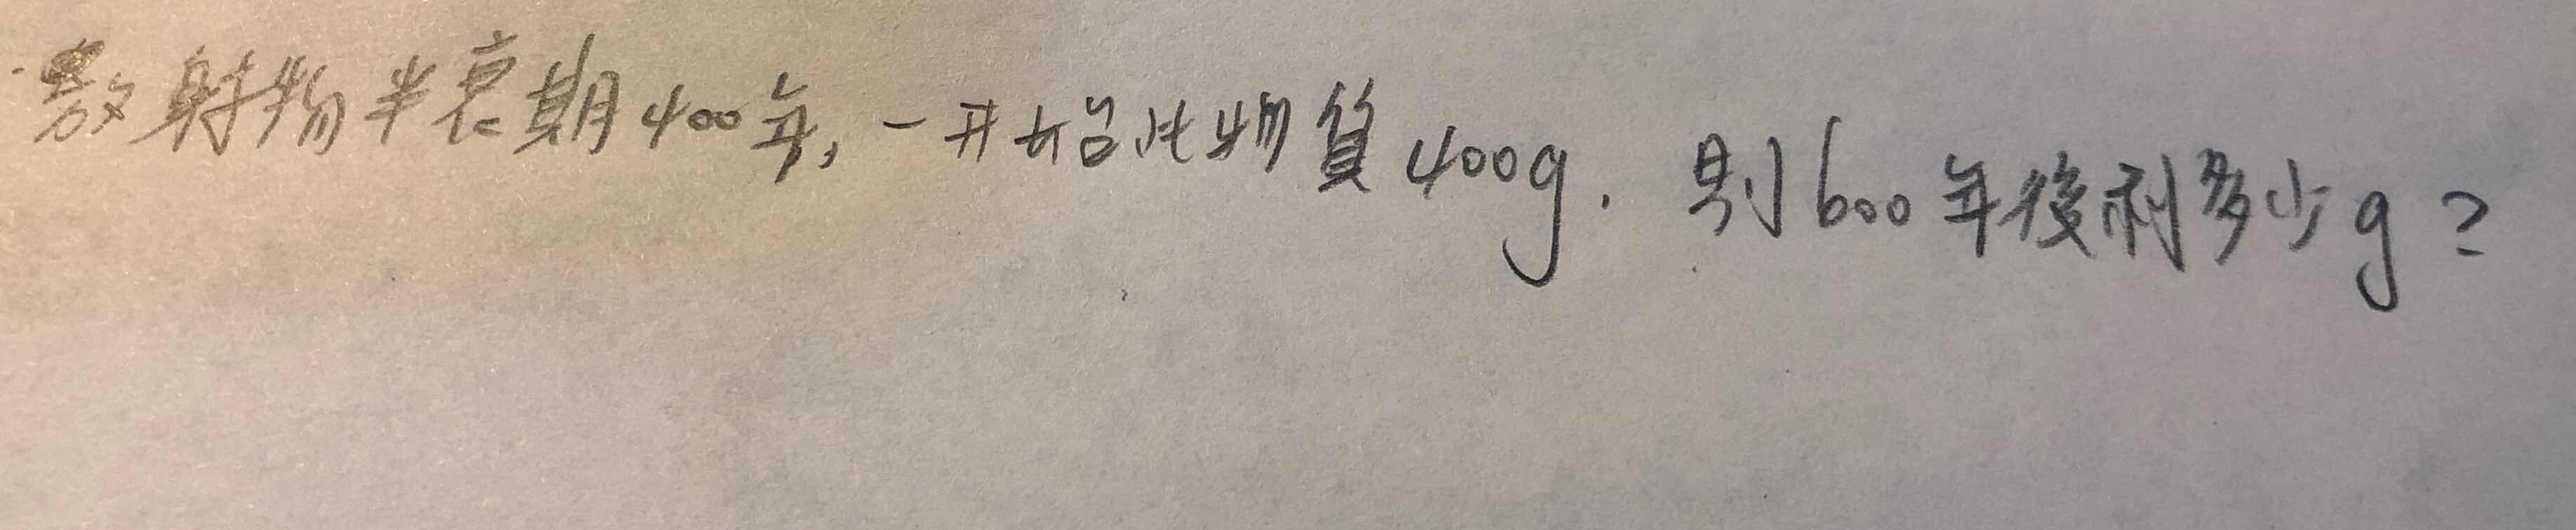 放射物半衰期400年,一开始此物質400g.則600年後剩多少g?